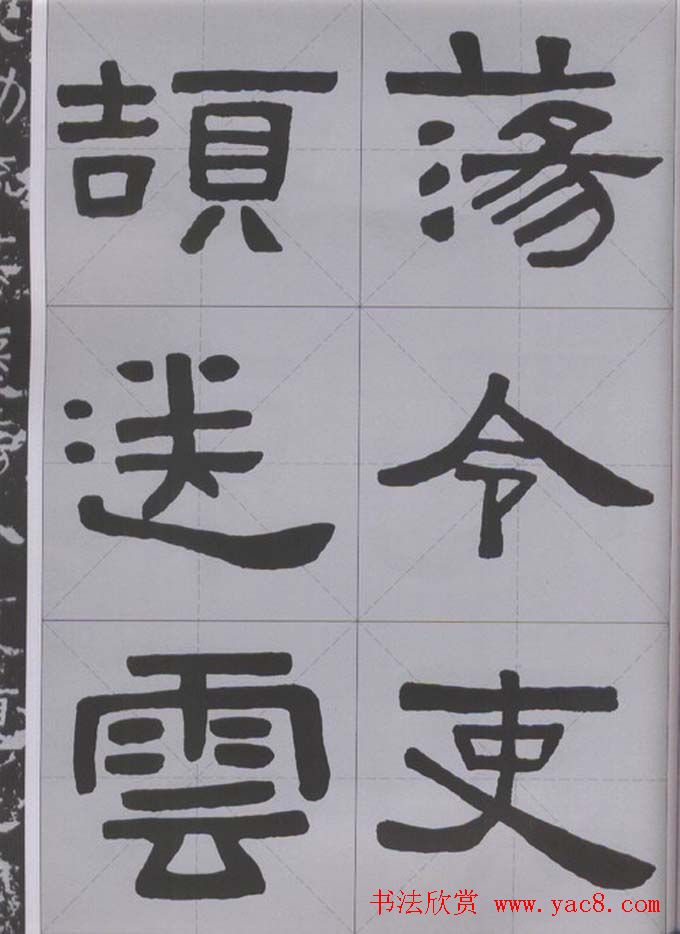 蕩令吏
頡送雲
书法欣赏 www.yac8.com